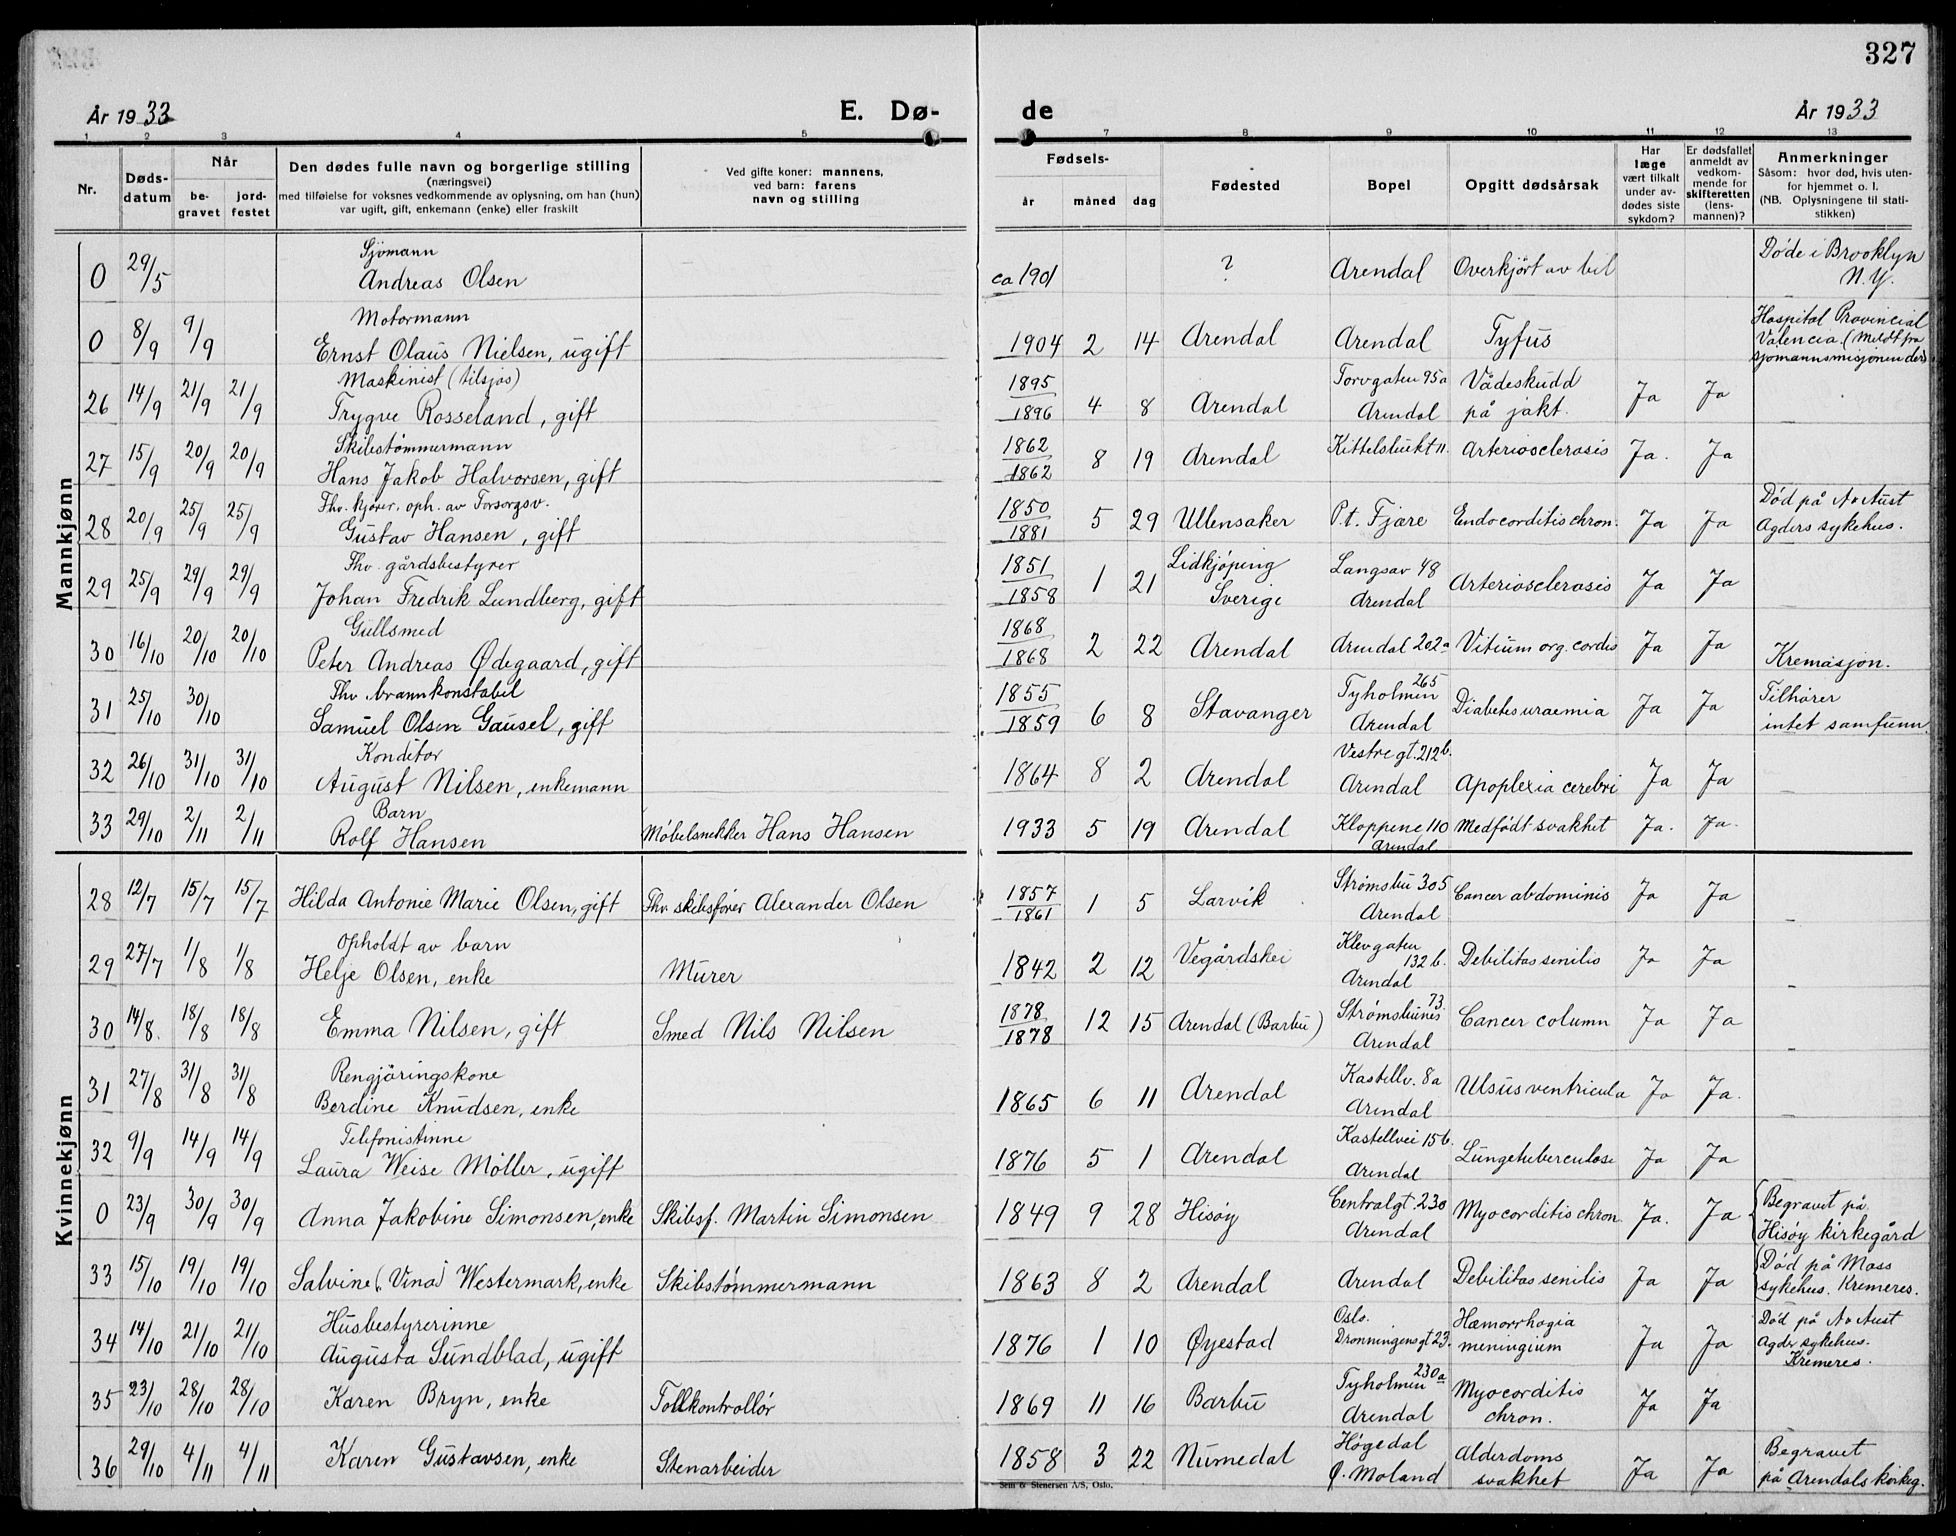 327
År 1933 E. Dø- de År 1933
1 2 3 4 5 7 8 9 10 11 12 13
Nr. Døds-datum Når be-gravet jord-festet Den dødes fulle navn og borgerlige stilling (næringsvei) med tilføielse for voksnes vedkommende av oplysning, om han (hun) var ugift, gift, enkemann (enke) eller fraskilt Ved gifte koner: mannens, ved barn: farens navn og stilling Fødsels- år måned dag Fødested Bopel Opgitt dødsårsak Har læge vært tilkalt under av-dødes siste sykdom? Er dødsfallet anmeldt av vedkom-mende for skifteretten (lens-mannen)? Anmerkninger Såsom: hvor død, hvis uten-for hjemmet o. l. (NB. Oplysningene til stati-stikken)
Mannkjønn
0 29/5 Sjømann Andreas Olsen ca 1901 ? Arendal Overkjørt av bil Døde i Brooklyn N.Y.
0 8/9 9/9 Motormann Ernst Olaus Nielsen, ugift 1904 2 14 Arendal Arendal Tyfus Hospital Provincial Valencia. (Meldt fra sjømannsmisjonen der)
26 14/9 21/9 21/9 Maskinist (tilsjøs) Trygve Rosseland, gift 1895/1896 4 8 Arendal Torvgaten 95a Arendal Vådeskudd på jakt. Ja Ja
27 15/9 20/9 20/9 Skibstømmermann Hans Jakob Halvorsen, gift 1862/1862 8 19 Arendal Kittelsbukt 11. Arteriosclerosis Ja. Ja
28 20/9 25/9 25/9 Fhv. kjører, oph. av Forsorgsv. Gustav Hansen, gift 1850/1881 5 29 Ullensaker P.t. Fjære Endocorditis chron. Ja Ja Død på A. Aust Agders sykehus.
29 25/9 29/9 29/9 Fhv. gårdsbestyrer Johan Fredrik Lundberg, gift 1851/1858 1 21 Lidkjøping Sverige Langsæv 48 Arendal Arteriosclerosis Ja Ja
30 16/10 20/10 20/10 Gullsmed Peter Andreas Ødegaard, gift 1868/1868 2 22 Arendal Arendal 202a Vitium org. cordis Ja Ja Kremasjon.
31 25/10 30/10 Fhv. brannkonstabel Samuel Olsen Gausel, gift 1855/1859 6 8 Stavanger Tyholmen 265 Arendal Diabetes uraemia Ja Ja Tilhører intet samfunn.
32 26/10 31/10 31/10 Konditor August Nilsen, enkemann 1864 8 2 Arendal Vestregt. 212b. Arendal Apoplexia cerebri Ja Ja
33 29/10 2/11 2/11 Barn Rolf Hansen Møbelsnekker Hans Hansen 1933 5 19 Arendal Kloppene 110 Arendal Medfødt svakhet Ja. Ja.
Kvinnekjønn
28 12/7 15/7 15/7 Hilda Antonie Marie Olsen, gift Fhv. skibsfører Alexander Olsen 1857/1861 1 5 Larvik Strømsbu 305 Arendal Cancer abdominis Ja Ja
29 27/7 1/8 1/8 Opholdt av barn Helje Olsen, enke Murer 1842 2 12 Vegårdshei Klevgaten 132 b. Arendal Debilitas senilis Ja Ja
30 14/8. 18/8 18/8 Emma Nilsen, gift Smed Nils Nilsen 1878/1878 12 15 Arendal (Barbu) Strømsbunes 73 Arendal Cancer column Ja Ja
31 27/8 31/8 31/8 Rengjøringskone Berdine Knudsen, enke 1865 6 11 Arendal Kastellv. 8a Arendal Ulsus ventricula Ja Ja.
32 9/9 14/9 14/9 Telefonistinne Laura Weise Møller, ugift 1876 5 1 Arendal Kastellvei 15b. Arendal Lungetuberculose Ja Ja
0 23/9 30/9 30/9 Anna Jakobine Simonsen, enke Skibsf. Martin Simonsen 1849 9 28 Hisøy Centralgt. 230 Arendal Myocorditis chron. Ja. Ja Begravet på Hisøy kirkegård
33 15/10 19/10 19/10 Salvine (Vina) Westermark, enke Skibstømmermann 1863 8 2 Arendal Arendal Debilitas senilis Ja Ja Død på Moss sykehus. Kremeres.
34 14/10 21/10 21/10 Husbestyrerinne Augusta Sundblad, ugift 1876 1 10 Øyestad Oslo. Dronningensgt 23. Hæmorrhagia meningium Ja Ja Død på A. Aust Agder sykehus. Kremeres.
35 23/10 28/10 28/10 Karen Bryn, enke Tollkontrollør 1869 11 16 Barbu Tyholmen 230a Arendal Myocorditis chron. Ja Ja
36 29/10 4/11 4/11 Karen Gustavsen, enke Stenarbeider 1858 3 22 Numedal Høgedal Ø. Moland Alderdoms svakhet Ja Ja Begravet på Arendals kirkeg.
Sem & Stenersen A/S, Oslo.